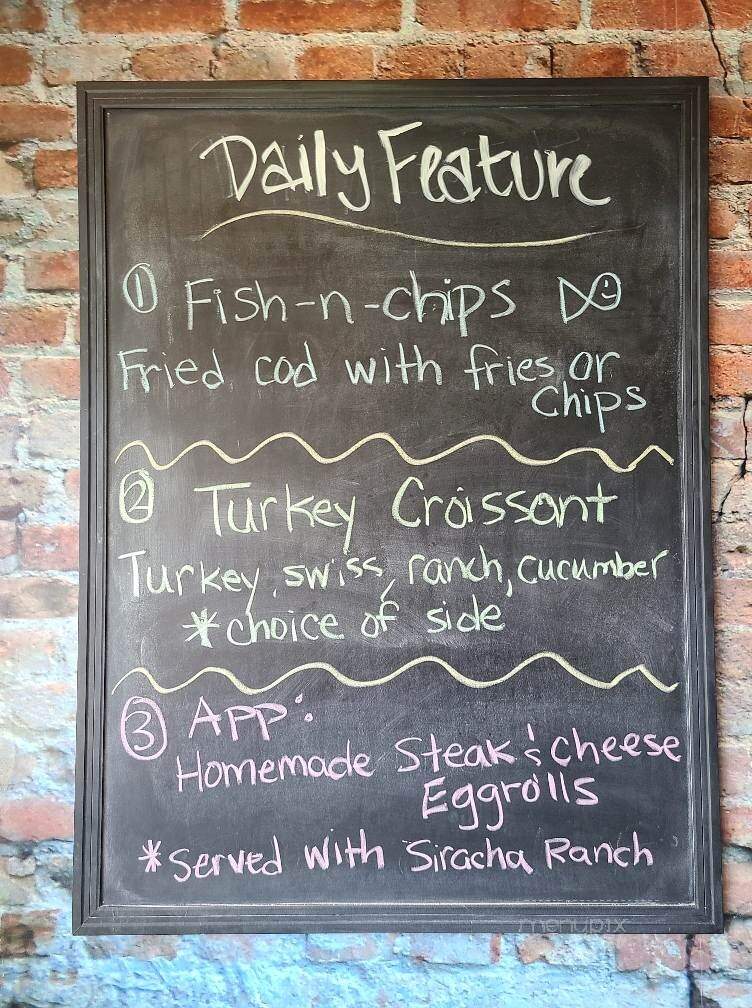 Daily Feature
① Fish-n-chips
Fried cod with fries or
chips
② Turkey Croissant
Turkey, swiss, ranch, cucumber
*choice of side
③ App:
Homemade Steak & Cheese
Eggrolls
*Served with Siracha Ranch
menupix